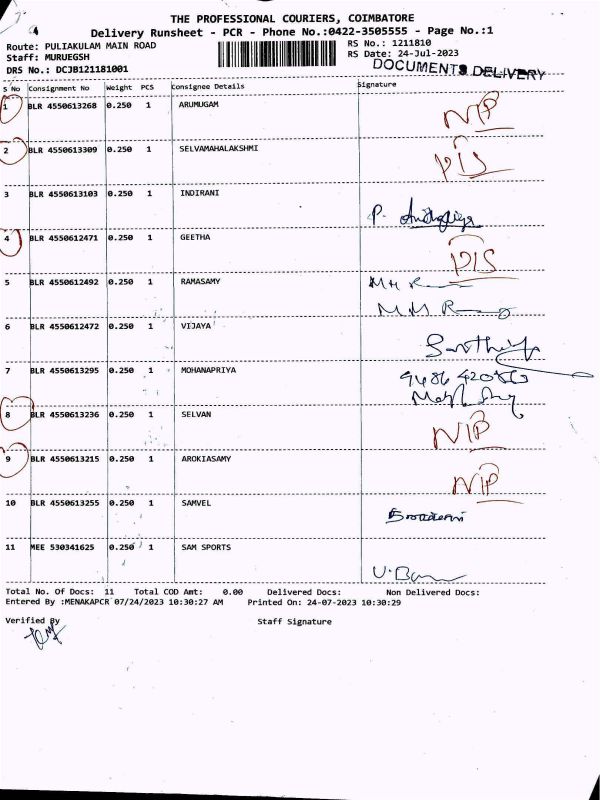 THE PROFESSIONAL COURIERS, COIMBATORE
Delivery Runsheet - PCR - Phone No.:0422-3505555 - Page No.:1
Route: PULIAKULAM MAIN ROAD RS No.: 1211810
Staff: MURUEGSH RS Date: 24-Jul-2023
DRS No.: DCJB121181001 DOCUMENTS DELIVERY
S No Consignment No Weight PCS Consignee Details Signature
1 BLR 4550613268 0.250 1 ARUMUGAM NIP
2 BLR 4550613309 0.250 1 SELVAMAHALAKSHMI PIS
3 BLR 4550613103 0.250 1 INDIRANI P.
4 BLR 4550612471 0.250 1 GEETHA PIS
5 BLR 4550612492 0.250 1 RAMASAMY
6 BLR 4550612472 0.250 1 VIJAYA
7 BLR 4550613295 0.250 1 MOHANAPRIYA
8 BLR 4550613236 0.250 1 SELVAN NIP
9 BLR 4550613215 0.250 1 AROKIASAMY NIP
10 BLR 4550613255 0.250 1 SAMVEL
11 MEE 530341625 0.250 1 SAM SPORTS
Total No. Of Docs: 11 Total COD Amt: 0.00 Delivered Docs: Non Delivered Docs:
Entered By :MENAKAPCR 07/24/2023 10:30:27 AM Printed On: 24-07-2023 10:30:29
Verified By Staff Signature